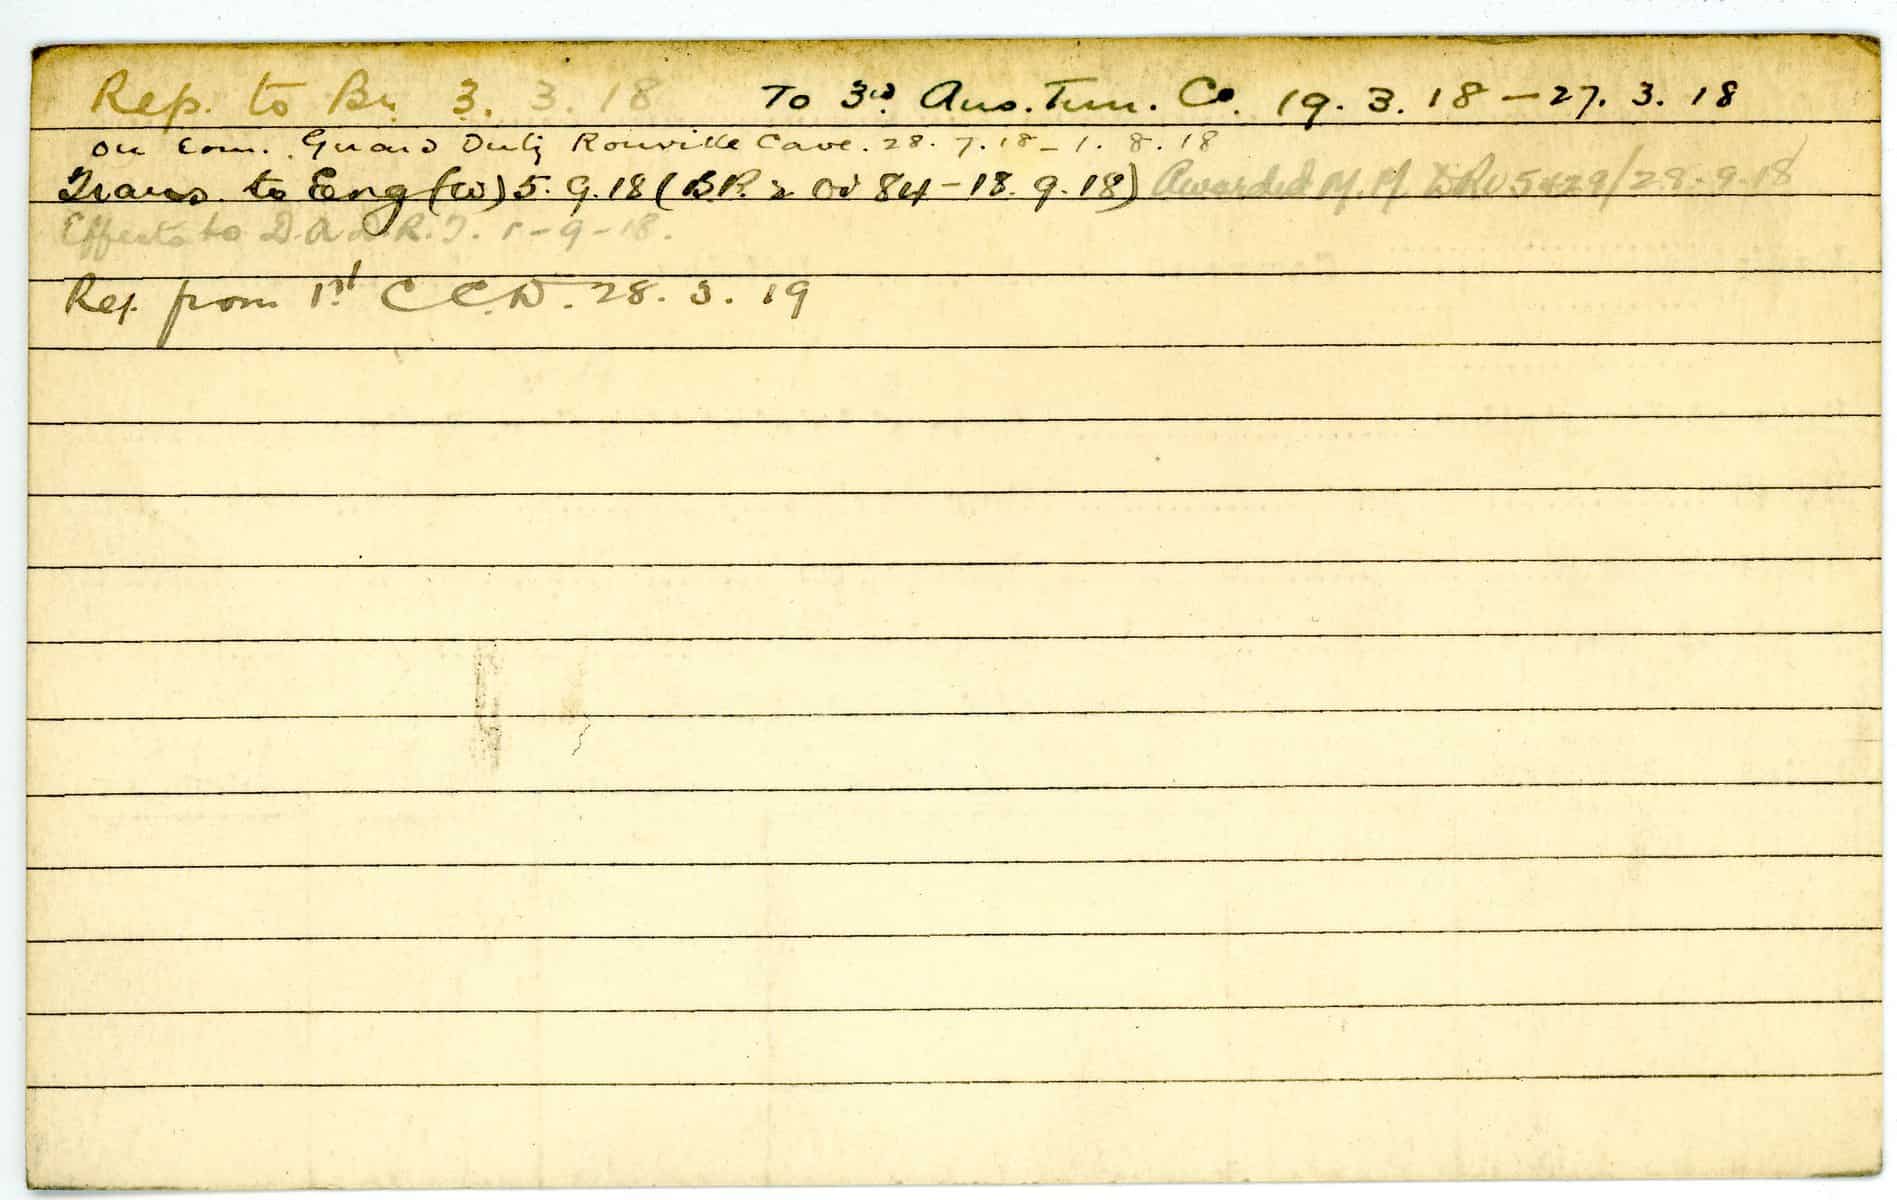 Rep. to Bn 3. 3. 18 To 3rd Aus. Tun. Co. 19. 3. 18 – 27. 3. 18
on com. Guard Duty Ronville Cave. 28. 7. 18 – 1. 8. 18
Trans. to Eng (W) 5. 9. 18 (B.R. 2 84 – 18. 9. 18) Awarded M. M. DRO 5429/28.9.18
Effects to D.A.D.R.T. – 9 – 18.
Rep. from 1st C.C.D. 28. 3. 19